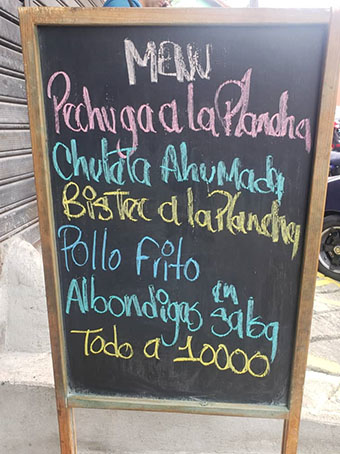 MENU
Pechuga a la Plancha
Chuleta Ahumada
Bistec a la Plancha
Pollo frito
Albondigas en salsa
Todo a 10000